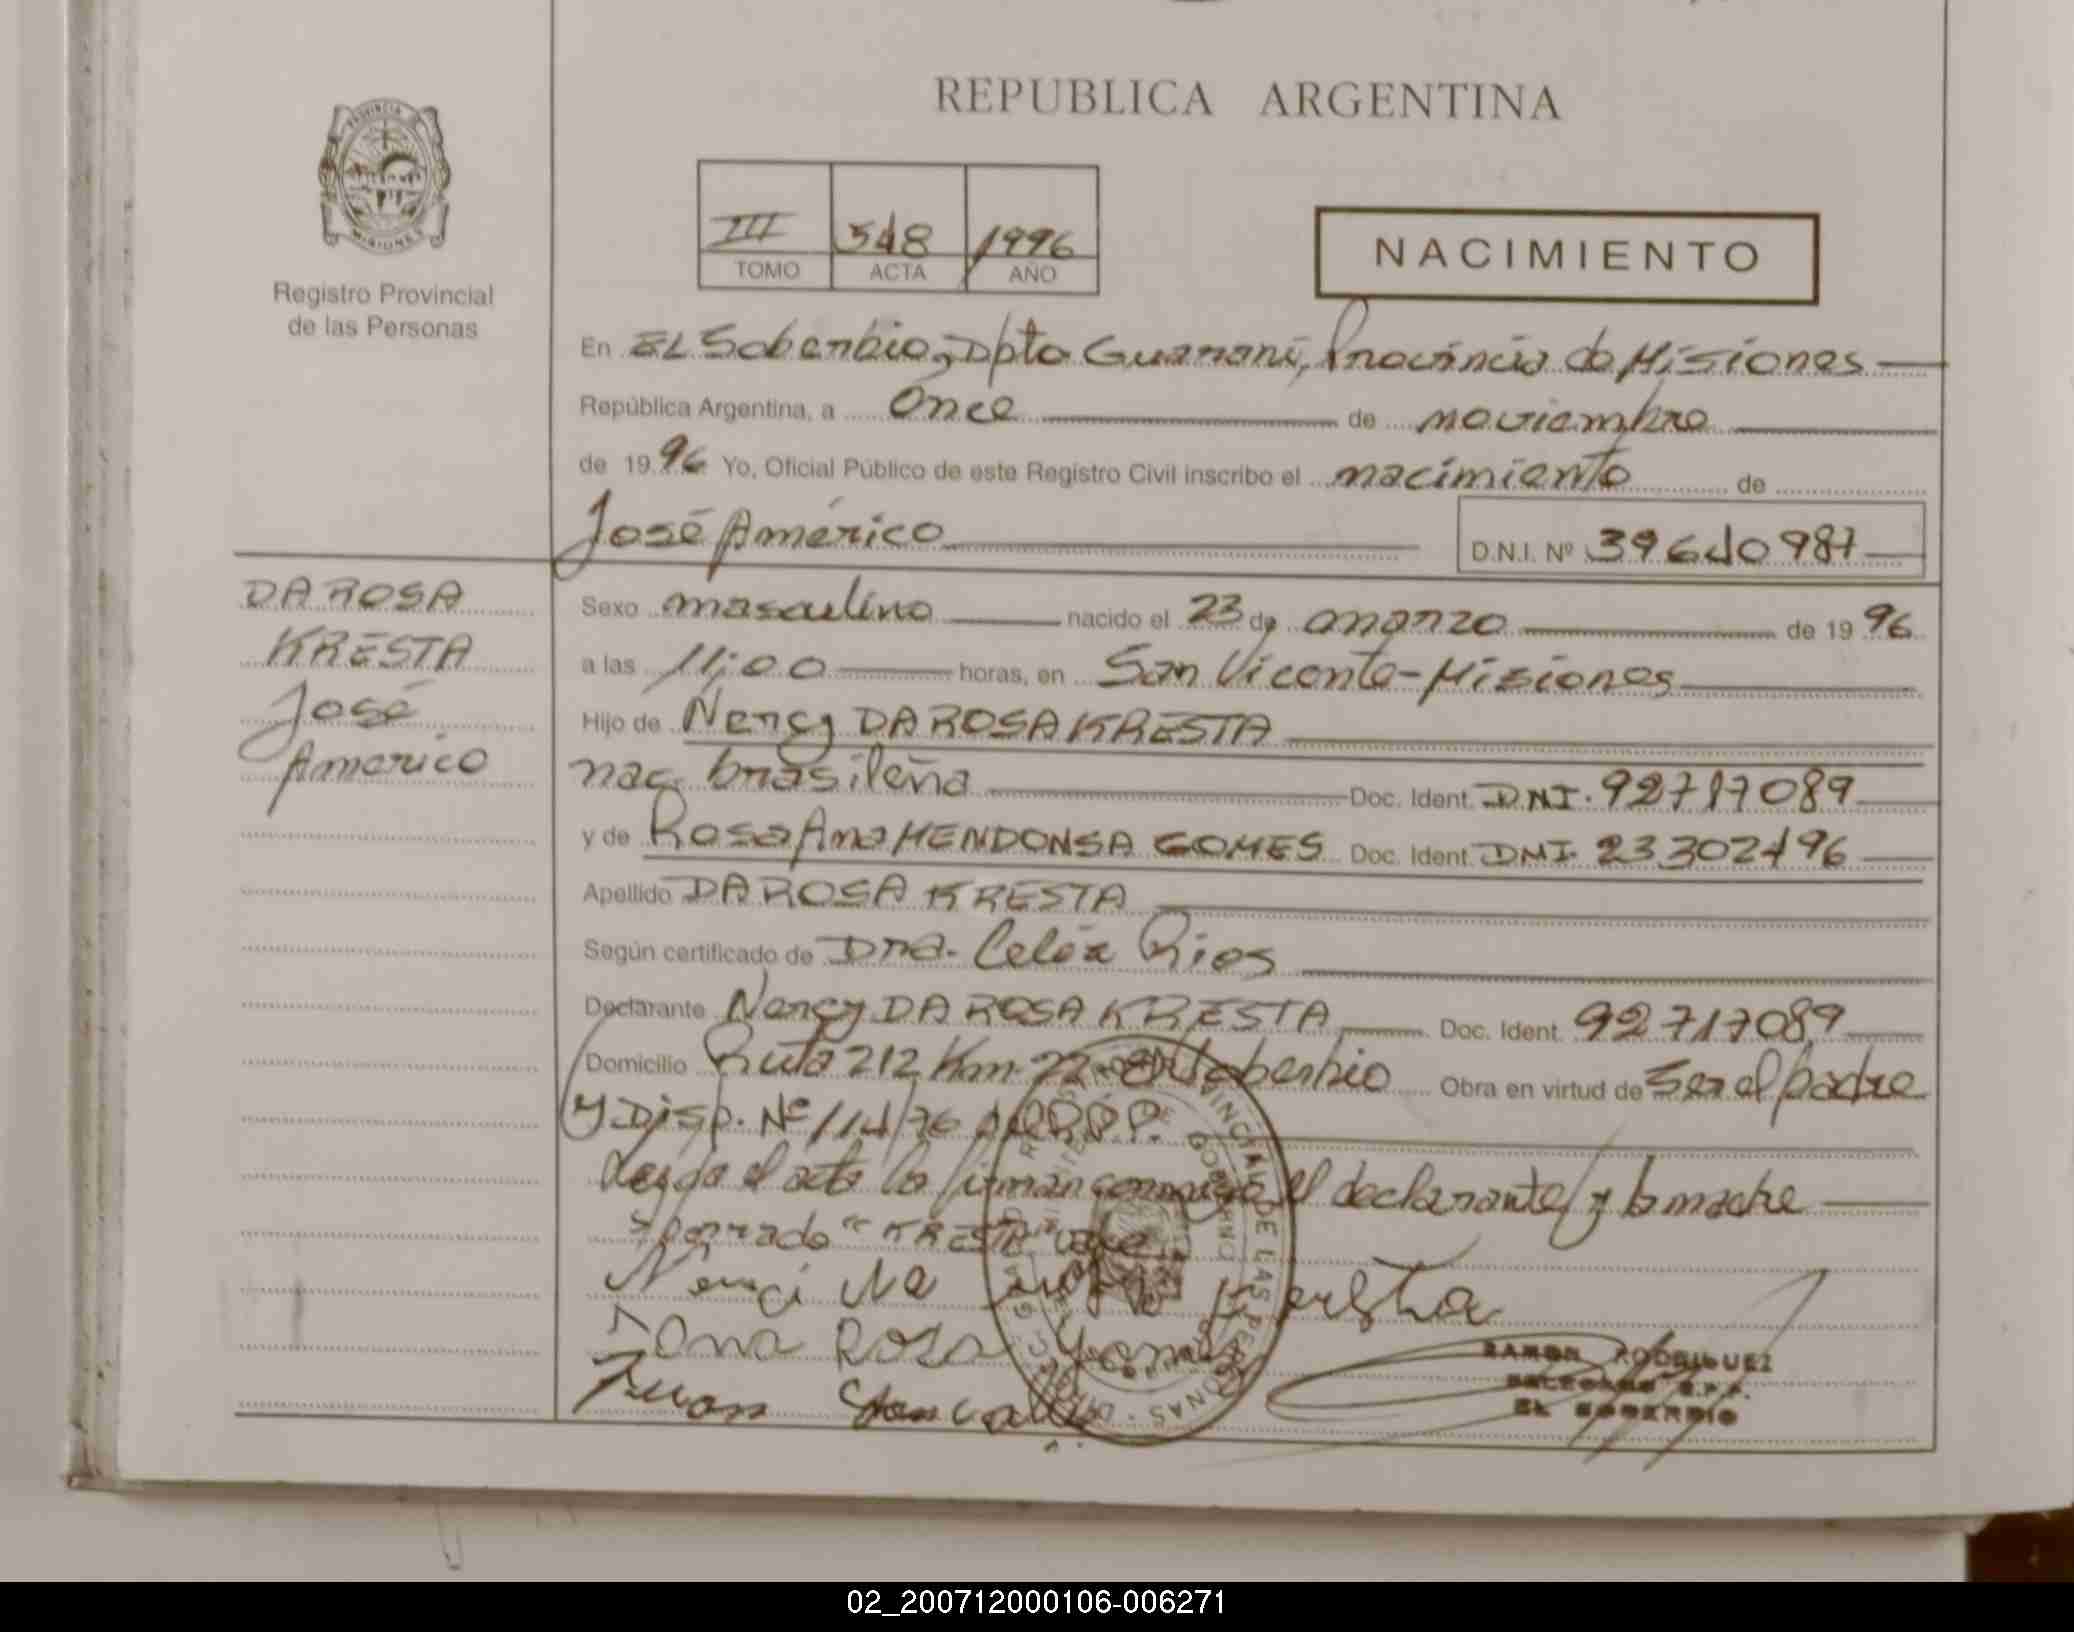 REPUBLICA ARGENTINA
PROVINCIA
MISIONES
Registro Provincial
de las Personas
III 548 1996
TOMO ACTA AÑO
NACIMIENTO
En EL Soberbio, Dpto Guaraní, Provincia de Misiones
República Argentina, a Once de noviembre
de 1996 Yo, Oficial Público de este Registro Civil inscribo el nacimiento de
José Américo D.N.I. Nº 39640987
DA ROSA
KRESTA
José
Americo
Sexo masculino nacido el 23 de marzo de 1996
a las 11:00 horas, en San Vicente - Misiones
Hijo de Nency DA ROSA KRESTA
nac. brasileña Doc. Ident. DNI. 92717089
y de Rosa Ana MENDONSA GOMES Doc. Ident. DNI. 23302196
Apellido DA ROSA KRESTA
Según certificado de Dra. Celia Rios
Declarante Nency DA ROSA KRESTA Doc. Ident. 92717089
Domicilio Ruta 212 Km. 22 El Soberbio Obra en virtud de Ser el padre
y Disp. Nº 114/76
Leyda el acta la firman conmigo el declarante y la madre
"KRESTA" vale
Nenci da Kersta
Ana Rosa Gomes
Juan
RAMON RODRIGUEZ
DELEGADO R.P.P.
EL SOBERBIO
02_200712000106-006271